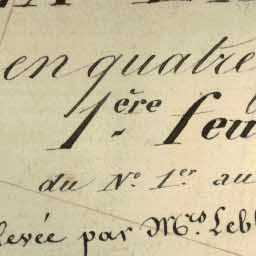 en quatre
1ère feu
du No. 1er au
levée par Mrs. Lebl